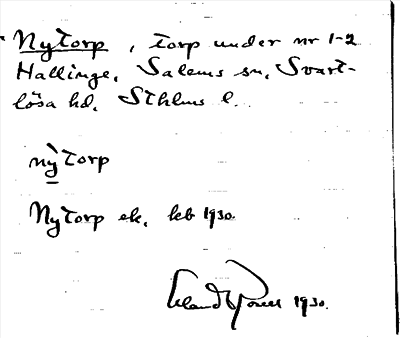 Nytorp, torp under nr 1-2
Hallinge, Salems sn, Svart-
lösa hd, Sthlms l.
nỳtorp
Nytorp ek. kb 1930.
1930.